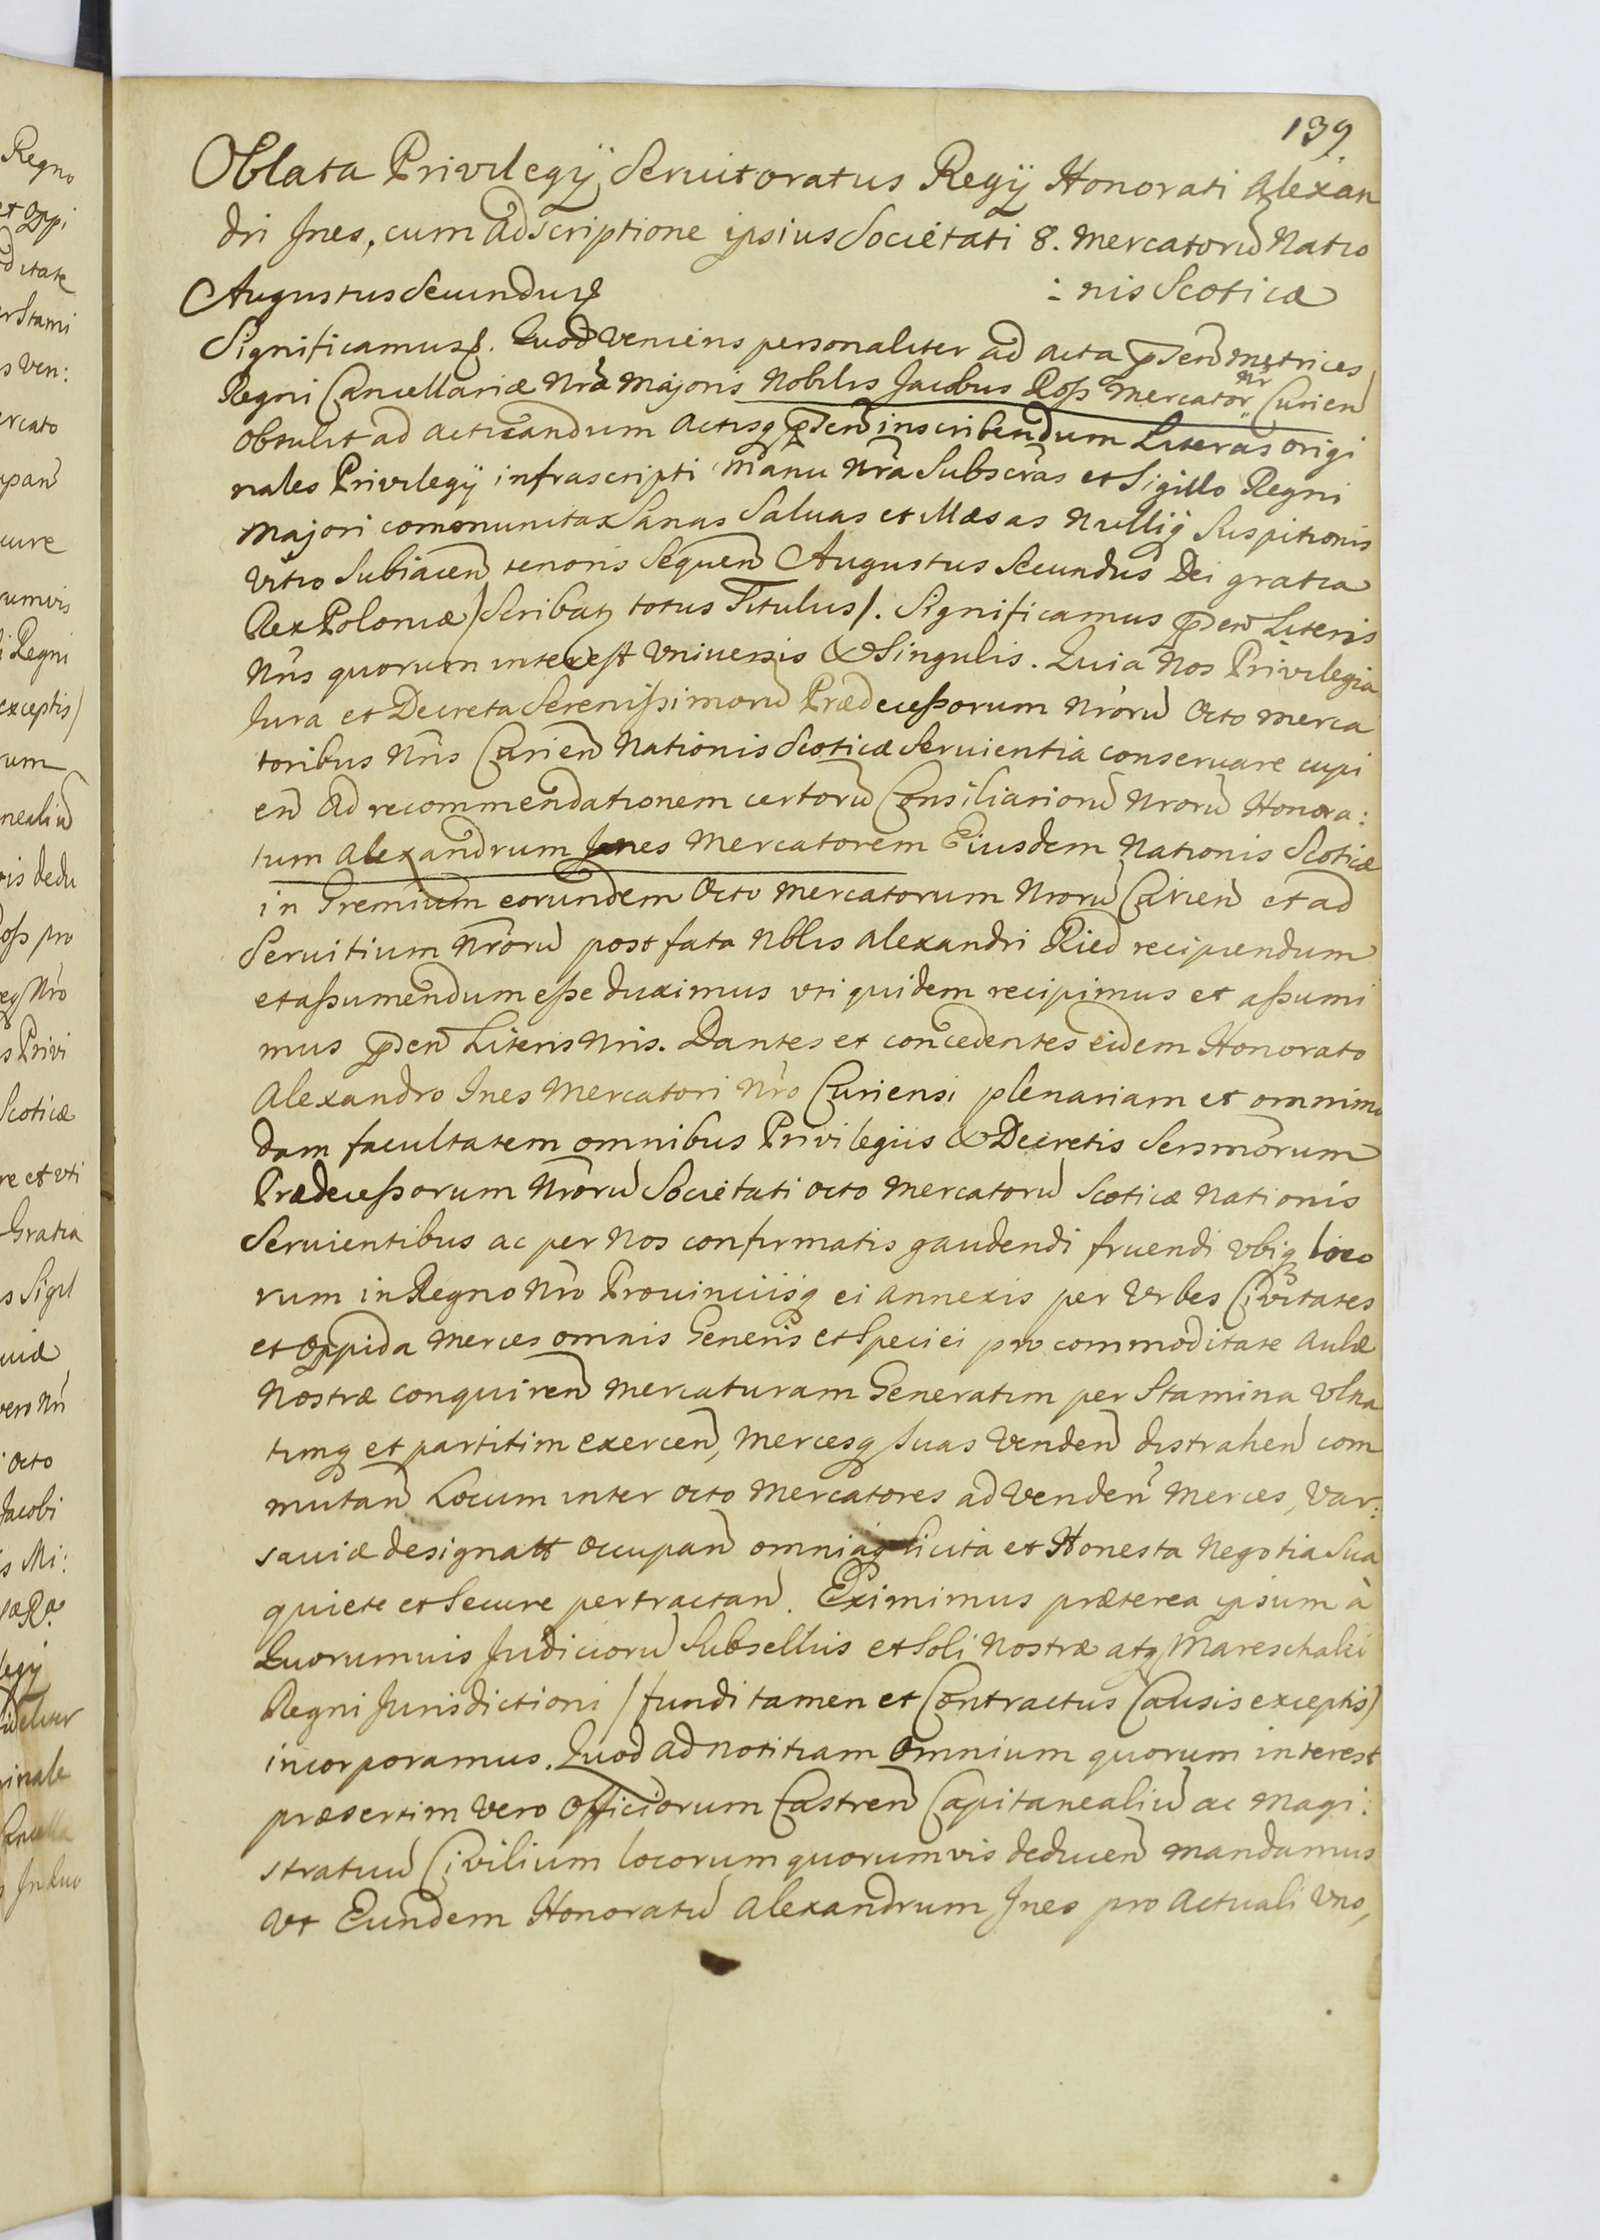 139.
Oblata Privilegÿ Seruitoratus Regÿ Honorati Alexan
dri Ines, cum adscriptione ipsius Societati 8. Mercatorũ Natio
Augustus Secundus
:nis Scoticæ
Significamus. Quod veniens personaliter ad Acta p̃sen Metrices
Regni Cancellariæ Nrã Majoris Nobilis Jacobus Ross Mercator Nr Curien̄
obtulit ad acticandum Actisq p̃sen inscribendum Literas origi
nales Privilegÿ infrascripti Manu Nrã Subscrãs et Sigillo Regni
Majori communitas Sanas Saluas et illæsas Nulliq Suspitionis
Vitio Subiacen̄ tenoris Sequen̄ Augustus Secundus Dei gratia
Rex Poloniæ /Scribat totus Titulus/. Significamus p̃sen Literis
Nris quorum interest Vniuersis & Singulis. Quia Nos Privilegia
Iura et Decreta Serenissimorũ Prædecessorum Nrorũ Octo Merca
toribus Nris Curien̄ Nationis Scoticæ Seruientia conseruare cupi
en̄ Ad recommendationem certorũ Consiliariorũ Nrorũ Honora:
tum Alexandrum Jnes Mercatorem Eiusdem Nationis Scoticæ
in Gremium eorundem Octo Mercatorum Nrorũ Curien̄ et ad
Seruitium Nrorũ post fata Nblis Alexandri Ried recipiendum
et assumendum esse duximus vti quidem recipimus et assumi
mus p̃sen Literis Nris. Dantes et concedentes eidem Honorato
Alexandro Ines Mercatori Nro Curiensi plenariam et omnimo
dam facultatem omnibus Privilegiis & Decretis Sersmorum
Prædecessorum Nrorũ Societati octo Mercatorũ Scoticæ Nationis
Seruientibus ac per Nos confirmatis gaudendi fruendi vbiq loco
rum in Regno Nro Prouinciisq ei annexis per Vrbes Civitates
et Oppida Merces omnis Generis et Speciei pro commoditate Aulæ
Nostræ conquiren̄ Mercaturam Generatim per Stamina Vlna
timq et partitim exercen̄, Mercesq suas Venden̄ distrahen̄ com
mutan̄ Locum inter octo Mercatores ad Venden̄ Merces, Var:
sauiæ designatt Occupan̄ omniaq licita et Honesta Negotia Sua
quiete et Secure pertractan̄. Eximimus præterea ipsum à
Quorumuis Judiciorũ Subselliis et Soli Nostræ atq Mareschalci
Regni Jurisdictioni /fundi tamen et Contractus Causis exceptis/
incorporamus. Quod ad notitiam Omnium quorum interest
præsertim vero Officiorum Castren̄ Capitanealiũ ac Magi:
stratuũ Civilium locorum quorumvis deducen̄ mandamus
Vt Eundem Honoratũ Alexandrum Jnes pro Actuali Vno,